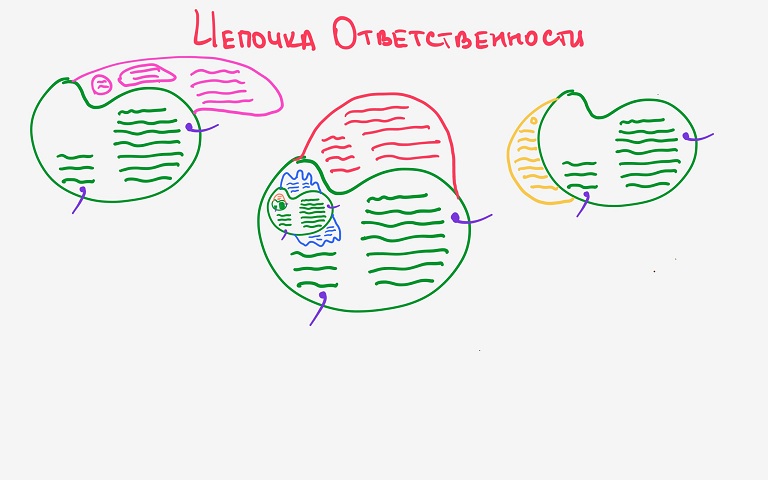 Цепочка Ответственности